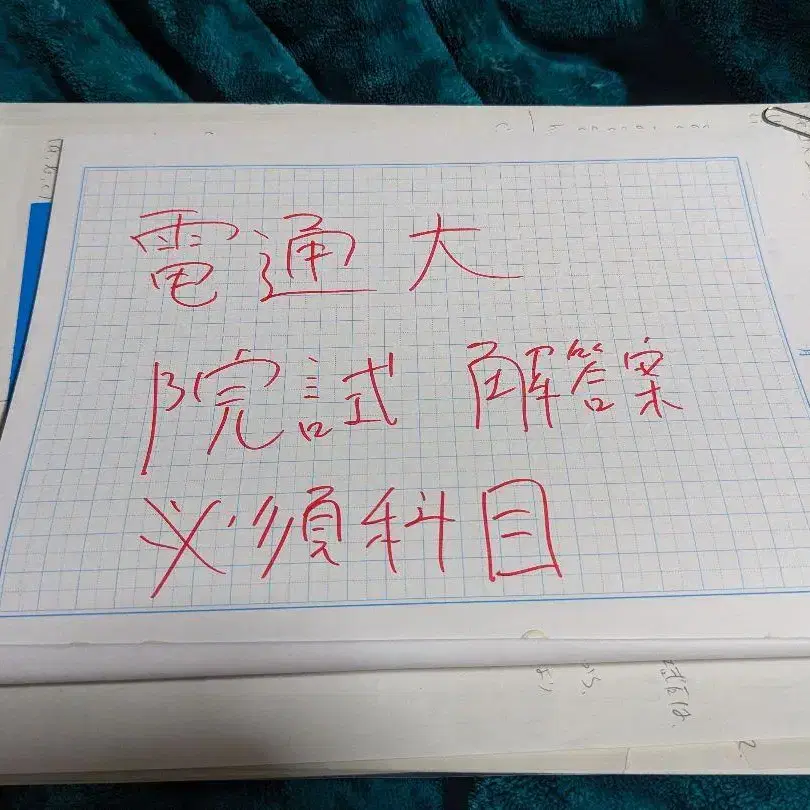 電通大
院試 解答案
必須科目